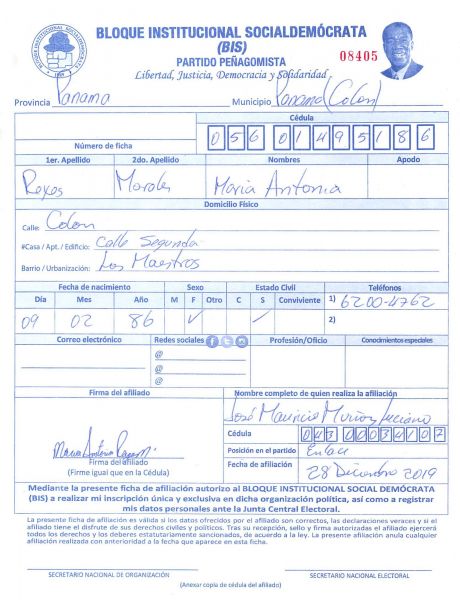 BLOQUE INSTITUCIONAL SOCIALDEMÓCRATA
(BIS)
PARTIDO PEÑAGOMISTA
08405
Libertad, Justicia, Democracia y Solidaridad
Provincia Panama Municipio Panama (Colon)
Cédula
Número de ficha 056 0149518 6
1er. Apellido 2do. Apellido Nombres Apodo
Reyes Morales Maria Antonia
Domicilio Físico
Calle: Colon
#Casa / Apt. / Edificio: Calle Segunda
Barrio / Urbanización: Los Maestros
Fecha de nacimiento Sexo Estado Civil Teléfonos
Día Mes Año M F Otro C S Conviviente 1) 6200-4762
09 02 86 ✓ ✓ 2)
Correo electrónico Redes sociales Profesión/Oficio Conocimientos especiales
@
@
@
Firma del afiliado Nombre completo de quien realiza la afiliación
José Mauricio Muñoz Luciano
Cédula
043 0003410 7
Maria Antonia Reyes M.
Posición en el partido Enlace
Firma del afiliado
(Firme igual que en la Cédula)
Fecha de afiliación 28 Diciembre 2019
Mediante la presente ficha de afiliación autorizo al BLOQUE INSTITUCIONAL SOCIAL DEMÓCRATA
(BIS) a realizar mi inscripción única y exclusiva en dicha organización política, así como a registrar
mis datos personales ante la Junta Central Electoral.
La presente ficha de afiliación es válida si los datos ofrecidos por el afiliado son correctos, las declaraciones veraces y si el
afiliado tiene el disfrute de sus derechos civiles y políticos. Tras su recepción, sello y firma autorizadas el afiliado ejercerá
todos los derechos y los deberes estatutariamente sancionados, de acuerdo a la ley. La presente afiliación anula cualquier
afiliación realizada con anterioridad a la fecha que aparece en esta ficha.
SECRETARIO NACIONAL DE ORGANIZACIÓN SECRETARIO NACIONAL ELECTORAL
(Anexar copia de cédula del afiliado)